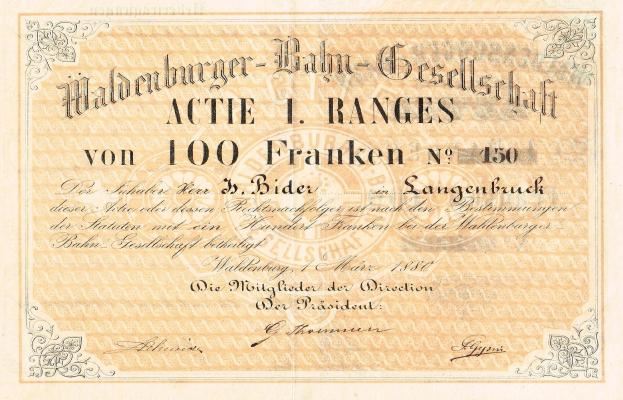 Waldenburger-Bahn-Gesellschaft
ACTIE I. RANGES
VON 100 Franken Nº 150
Der Inhaber Herr H. Bider in Langenbruck
dieser Actie oder dessen Rechtsnachfolger ist nach den Bestimmungen
der Statuten mit ein Hundert Franken bei der Waldenburger
Bahn-Gesellschaft betheiligt
Waldenburg, 1 März 1880
Die Mitglieder der Direction
Der Präsident:
G Thommen
Gysin